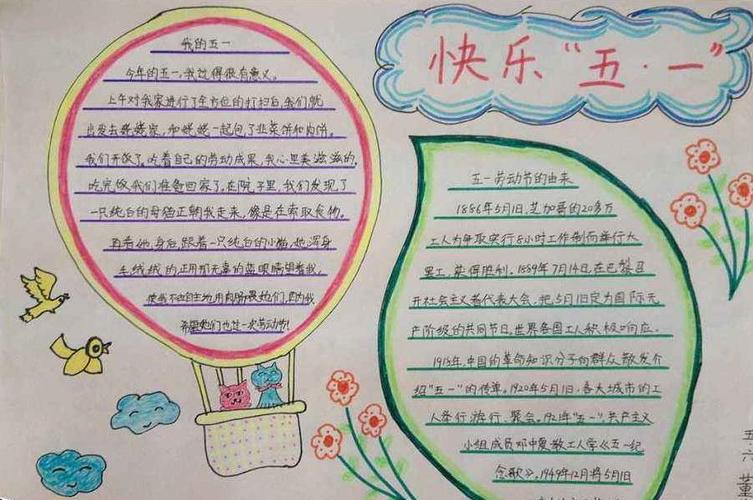 快乐“五·一”
我的五一
今年的五一，我过得很有意义。
上午对我家进行了全方位的打扫后，我们就
出发去姥姥家，和姥姥一起包了韭菜饼和肉饼。
我们开饭了。吃着自己的劳动成果，我心里美滋滋的。
吃完饭我们准备回家了，在院子里，我们发现了
一只纯白的母猫正朝我走来，像是在索取食物。
再看她身后，跟着一只纯白的小猫，她浑身
毛绒绒的正用那无辜的蓝眼睛望着我，
使我不由自主地用肉肠喂她们，因为我
希望她们也过一次劳动节！
五一劳动节的由来
1886年5月1日，芝加哥的20多万
工人为争取实行8小时工作制而举行大
罢工，获得胜利。1889年7月14日，在巴黎召
开社会主义者代表大会，把5月1日定为国际无
产阶级的共同节日，世界各国工人积极响应。
1918年，中国的革命知识分子向群众散发介
绍“五一”的传单。1920年5月1日，各大城市的工
人举行游行、聚会。1921年“五一”，共产主义
小组成员邓中夏教工人学《五一纪
念歌》，1949年12月将5月1日
五
六
董